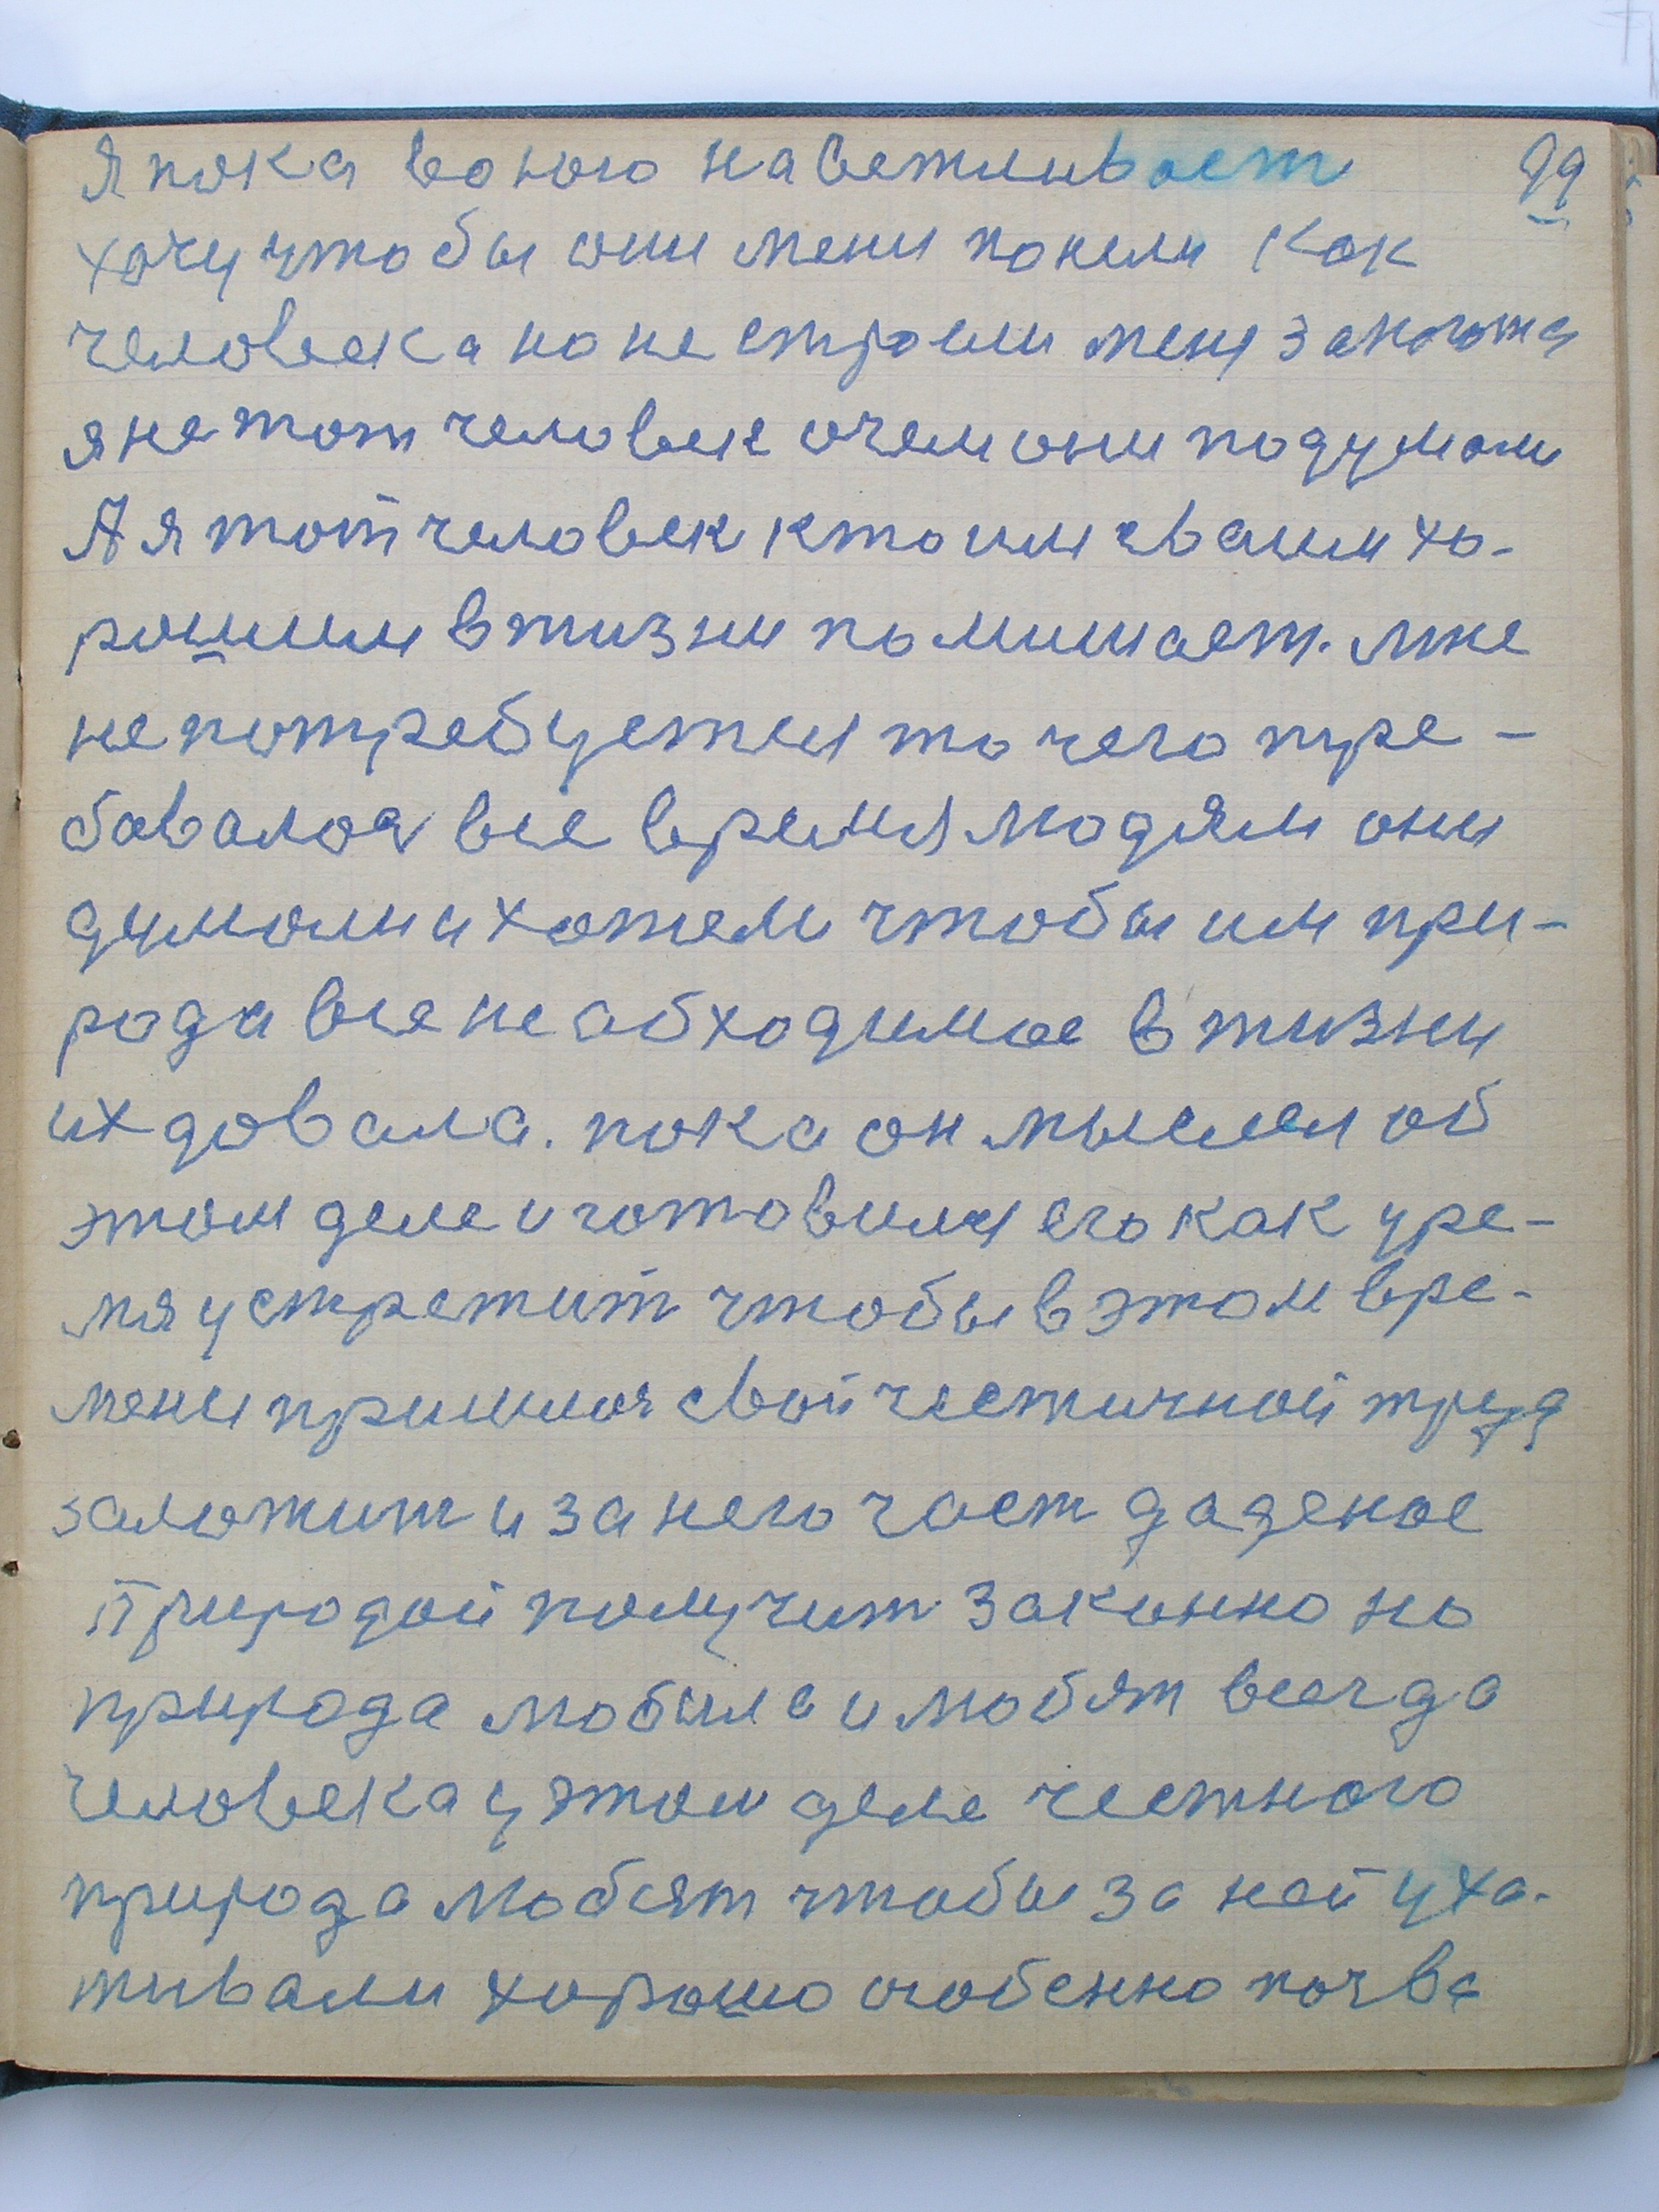 99
Я пока воного наветливает
хочу чтобы они меня понели как
человека но не строили меня
я не тот человек о чем они подумали
А я тот человек кто им сваим хо-
рошим в жизни помишает. мне
не потребуется то чего тре-
бавалося все время людям они
думали и хотели чтобы им при-
рода все необходимое в жизни
их довала. пока он мыслел об
этом деле и готовился его как уре-
мя устретит чтобы в этом вре-
мени пришлося свой честичной труд
заложит и за него част даденое
Природой получит законно но
природа любила и любят всегда
человека у этом деле честного
природа любят чтобы за ней уха-
живали хорошо особенно почва